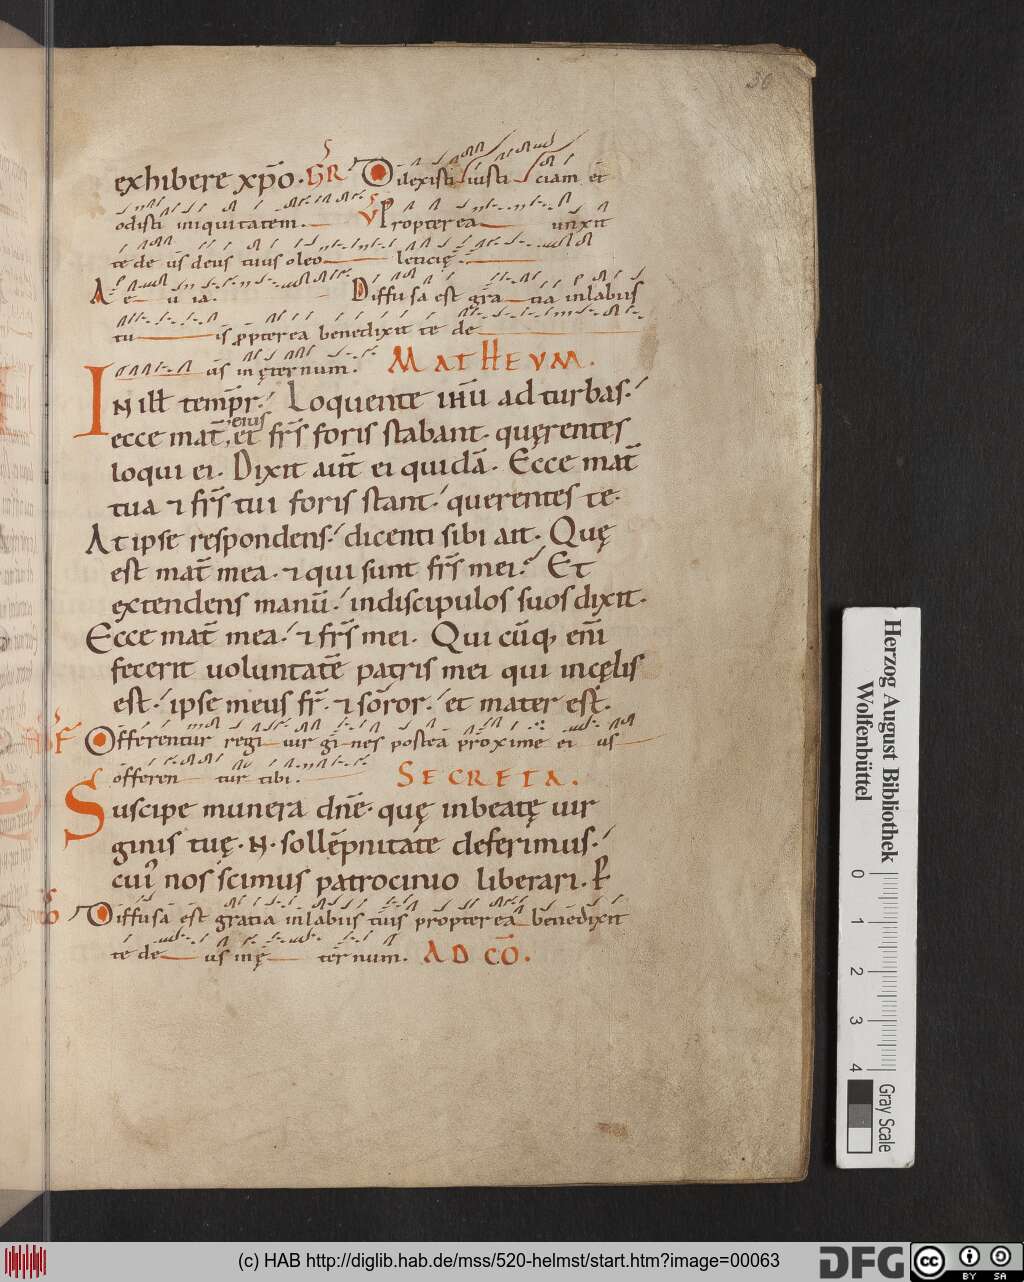 36
exhibere xp̄o. GR Dilexisti iusticiam et
odisti iniquitatem. V Propterea unxit
te de us deus tuus oleo leticię.
A e u ia. Diffusa est gratia in labiis
tu is p̱pterea benedixit te de
us in ęternum. MATHEVM.
In ill̄ temp̄r. Loquente ih̄u ad turbas.
ecce mat̄ eius et fr̄s foris stabant. quęrentes
loqui ei. Dixit aūt ei quidā. Ecce mat̄
tua ⁊ fr̄s tui foris stant. querentes te.
At ipse respondens. dicenti sibi ait. Quę
est mat̄ mea. ⁊ qui sunt fr̄s mei. Et
extendens manū. in discipulos suos dixit.
Ecce mat̄ mea. ⁊ fr̄s mei. Qui cūq, eni̅
fecerit uoluntatē patris mei qui in cęlis
est. ipse meus fr̄. ⁊ soror. et mater est.
OF Offerentur regi uirgines postea proxime ei us
offeren tur tibi. SECRETA.
Suscipe munera dn̄e. quę in beatę uir
ginis tuę. N. sollēpnitate deferimus.
cui nos scimus patrocinio liberari. P
CO Diffusa est gratia in labiis tuis propterea benedixit
te de us in ę ternum. AD CŌ.
Herzog August Bibliothek
Wolfenbüttel
0 1 2 3 4
Gray Scale
(c) HAB http://diglib.hab.de/mss/520-helmst/start.htm?image=00063
DFG
cc BY SA